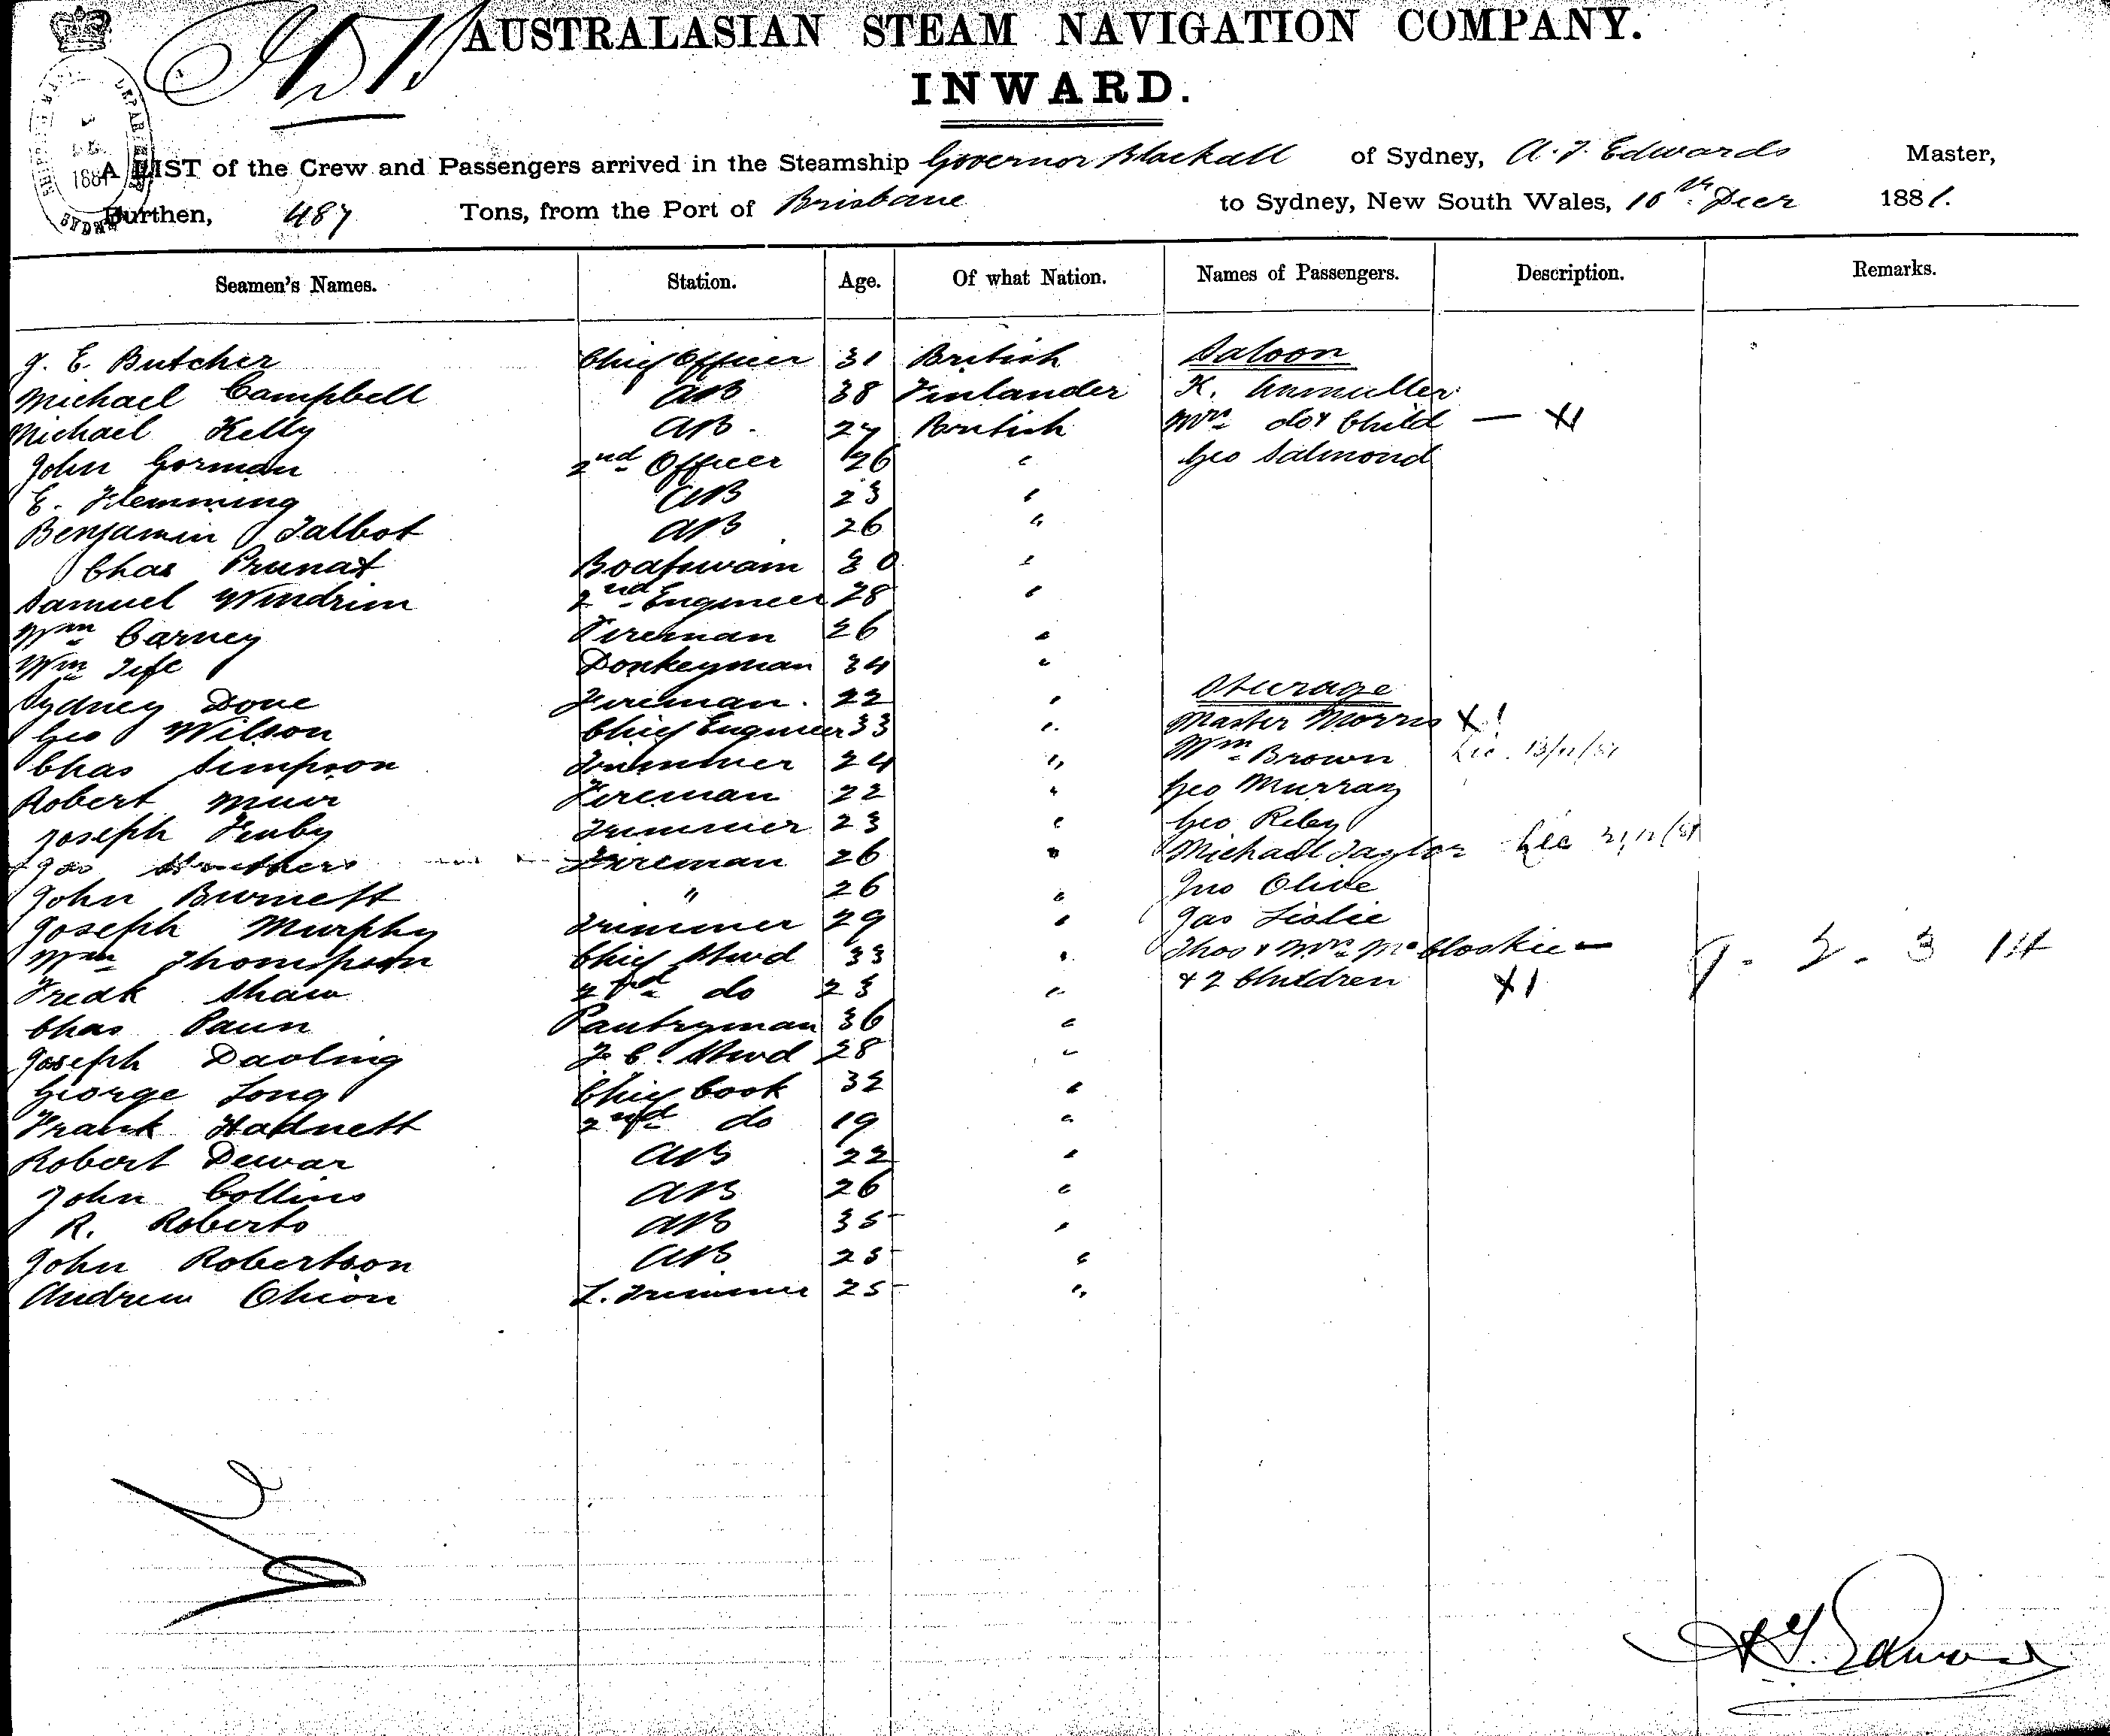 AUSTRALASIAN STEAM NAVIGATION COMPANY.
INWARD.
A LIST of the Crew and Passengers arrived in the Steamship Governor Blackall of Sydney, A. J. Edwards Master,
Burthen, 487 Tons, from the Port of Brisbane to Sydney, New South Wales, 10th Decr 1881.
Seamen's Names. Station. Age. Of what Nation. Names of Passengers. Description. Remarks.
J. E. Butcher Chief Officer 31 British Saloon
Michael Campbell AB 38 Finlander K.
Michael Kelly AB 27 British Mrs do & Child — X1
John Gorman 2nd Officer 26 " Geo Salmond
E. Flemming AB 23 "
Benjamin Talbot AB 26 "
Chas Prunat Boatswain 30 "
Samuel Windrim 2nd Engineer 28 "
Wm Carney Fireman 26 "
Wm Tife Donkeyman 34 "
Sydney Dove Fireman. 22 " Sturage
Geo Wilson Chief Engineer 33 " Master Morris X1
Chas Simpson Trimmer 24 " Wm Brown
Robert Muir Fireman 22 " Geo Murray
Joseph Trimmer 23 " Geo Riley
Jas Fireman 26 " Michael Taylor
John Burnett " 26 " Jno Olive
Joseph Murphy Trimmer 29 " Jas Lislie
Wm Thompson Chief Stwd 33 " Thos & Mrs McCloskie —
Fredk Shaw 2nd do 23 " & 2 Children X1
Chas Paun Pantryman 36 "
Joseph Daoling F. C. Stwd 28 "
George Long Chief Cook 32 "
Frank Hadnett 2nd do 19 "
Robert Dewar AB 22 "
John Collins AB 26 "
R. Roberts AB 35 "
John Robertson AB 25 "
Andrew Ohion L. Trimmer 25 "
A. J. Edwards